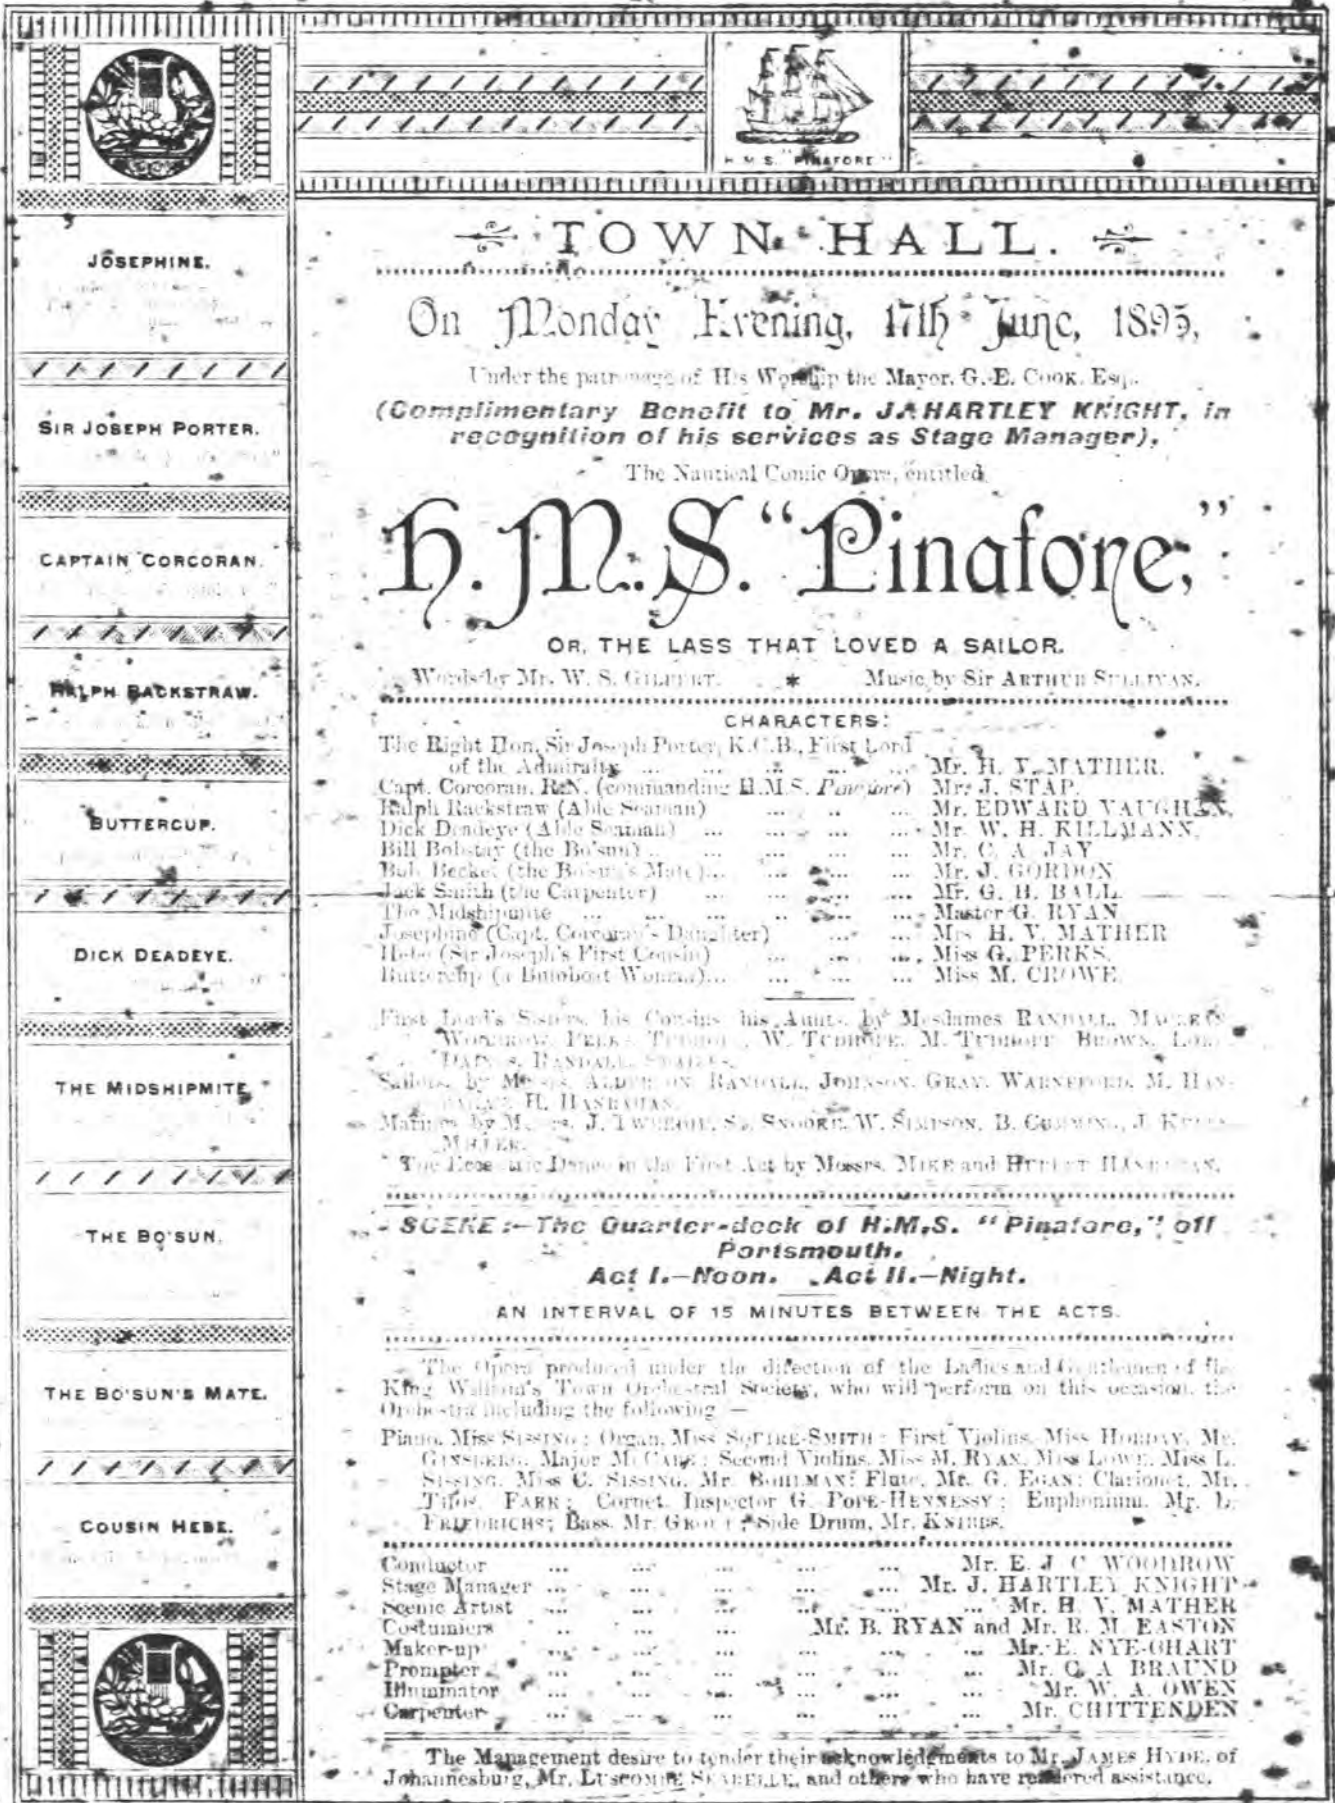 H.M.S. "PINAFORE"
JOSEPHINE.
SIR JOSEPH PORTER.
CAPTAIN CORCORAN.
RALPH RACKSTRAW.
BUTTERCUP.
DICK DEADEYE.
THE MIDSHIPMITE
THE BO'SUN.
THE BO'SUN'S MATE.
COUSIN HEBE.
TOWN HALL.
On Monday Evening, 17th June, 1895,
Under the patronage of His Worship the Mayor, G. E. COOK, Esq.,
(Complimentary Benefit to Mr. J. HARTLEY KNIGHT, in
recognition of his services as Stage Manager),
The Nautical Comic Opera, entitled
H.M.S. "Pinafore,"
OR, THE LASS THAT LOVED A SAILOR.
Words by Mr. W. S. GILBERT. * Music by Sir ARTHUR SULLIVAN.
CHARACTERS:
The Right Hon. Sir Joseph Porter, K.C.B., First Lord
of the Admiralty ... ... ... ... ... Mr. H. V. MATHER.
Capt. Corcoran, R.N. (commanding H.M.S. Pinafore) Mr. J. STAP.
Ralph Rackstraw (Able Seaman) ... ... ... Mr. EDWARD VAUGHAN.
Dick Deadeye (Able Seaman) ... ... ... ... Mr. W. H. KILLMANN.
Bill Bobstay (the Bo'sun) ... ... ... ... ... Mr. C. A. JAY
Bob Becket (the Bo'sun's Mate)... ... ... ... Mr. J. GORDON
Jack Smith (the Carpenter) ... ... ... ... Mr. G. H. BALL.
The Midshipmite ... ... ... ... ... ... Master G. RYAN
Josephine (Capt. Corcoran's Daughter) ... ... Mrs H. V. MATHER
Hebe (Sir Joseph's First Cousin) ... ... ... Miss G. PERKS.
Buttercup (a Bumboat Woman)... ... ... ... Miss M. CROWE.
First Lord's Sisters, his Cousins, his Aunts, by Mesdames RANDALL,
WOODROW, PERKS, W. TUDHOPE, M. TUDHOPE, BROWN,
RANDALL,
Sailors, by Messrs. RANDALL, JOHNSON, GRAY, WARNEFORD, M. HAN-
H. HANRAHAN.
Marines by Messrs. J. TWEEDIE, SNOOKE, W. SIMPSON, B. CUMMING, J.
MILLER.
The Eccentric Dance in the First Act by Messrs. MIKE and HANRAHAN.
SCENE:—The Quarter-deck of H.M.S. "Pinafore," off
Portsmouth.
Act I.—Noon. Act II.—Night.
AN INTERVAL OF 15 MINUTES BETWEEN THE ACTS.
The Opera produced under the direction of the Ladies and Gentlemen of the
King William's Town Orchestral Society, who will perform on this occasion, the
Orchestra including the following —
Piano, Miss SISSING; Organ, Miss SQUIRE-SMITH; First Violins, Miss HORDAY, Mr.
GINSBERG, Major McCABE; Second Violins, Miss M. RYAN, Miss LOWE, Miss L.
SISSING, Miss C. SISSING, Mr. BOHLMAN; Flute, Mr. G. EGAN; Clarionet, Mr.
THOS. FARR; Cornet, Inspector G. POPE-HENNESSY; Euphonium, Mr. L.
FRIEDRICHS; Bass, Mr. Side Drum, Mr. KNIBBS.
Conductor ... ... ... ... ... Mr. E. J. C. WOODROW
Stage Manager ... ... ... ... ... Mr. J. HARTLEY KNIGHT
Scenic Artist ... ... ... ... ... ... Mr. H. V. MATHER
Costumiers ... ... ... Mr. B. RYAN and Mr. R. M. EASTON
Maker-up ... ... ... ... ... ... Mr. E. NYE-CHART
Prompter ... ... ... ... ... ... Mr. C. A. BRAUND
Illuminator ... ... ... ... ... ... Mr. W. A. OWEN
Carpenter ... ... ... ... ... ... Mr. CHITTENDEN
The Management desire to tender their acknowledgments to Mr. JAMES HYDE, of
Johannesburg, Mr. LUSCOMBE SEARELLE, and others who have rendered assistance.